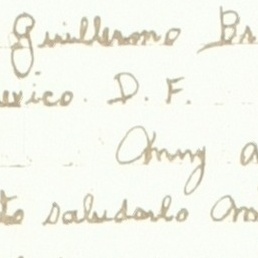 Guillermo Br
exico. D. F.
Anny a
to saludarlo